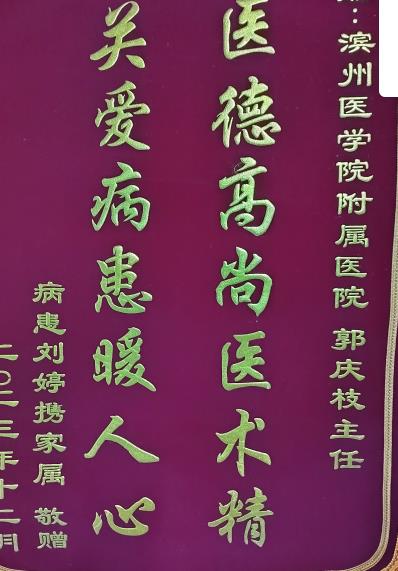 ：滨州医学院附属医院 郭庆枝主任
医德高尚医术精
关爱病患暖人心
病患刘婷携家属 敬赠
二〇二三年十二月